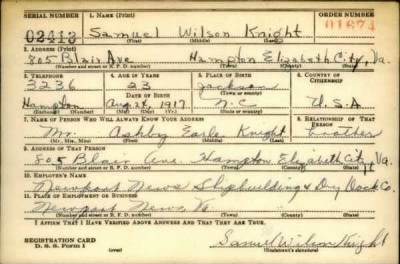 SERIAL NUMBER 1. NAME (Print) ORDER NUMBER
02413 Samuel Wilson Knight
(First) (Middle) (Last)
2. ADDRESS (Print)
805 Blair Ave Hampton Elizabeth City, Va.
(Number and street or R. F. D. number) (Town) (County) (State)
3. TELEPHONE 4. AGE IN YEARS 5. PLACE OF BIRTH 6. COUNTRY OF CITIZENSHIP
3236 23 Jackson
DATE OF BIRTH (Town or county)
Hampton Aug 24, 1917 N.C U.S.A
(Exchange) (Mo.) (Day) (Yr.) (State or country)
7. NAME OF PERSON WHO WILL ALWAYS KNOW YOUR ADDRESS 8. RELATIONSHIP OF THAT PERSON
Mr. Ashby Earle Knight brother
(Mr., Mrs., Miss) (First) (Middle) (Last)
9. ADDRESS OF THAT PERSON
805 Blair Ave. Hampton, Elizabeth City, Va.
(Number and street or R. F. D. number) (Town) (County) (State)
10. EMPLOYER'S NAME
Newport News Shipbuilding & Dry Dock Co.
11. PLACE OF EMPLOYMENT OR BUSINESS
Newport News, Va.
(Number and street or R. F. D. number) (Town) (County) (State)
I AFFIRM THAT I HAVE VERIFIED ABOVE ANSWERS AND THAT THEY ARE TRUE.
REGISTRATION CARD
D. S. S. Form 1 (over) Samuel Wilson Knight
(Registrant's signature)